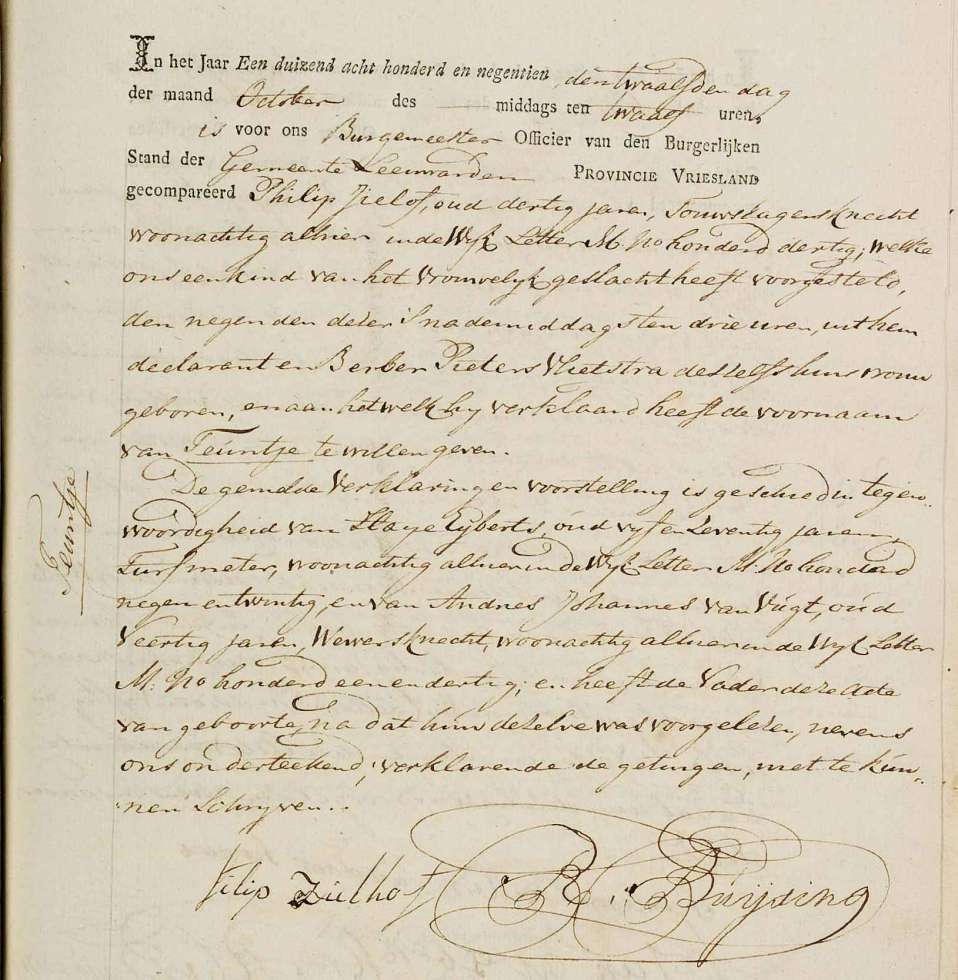 In het Jaar Een duizend acht honderd en negentien den twaalfden dag
der maand October des middags ten twaalf uren,
is voor ons Burgemeester Officier van den Burgerlijken
Stand der Gemeente Leeuwarden PROVINCIE VRIESLAND
gecompareerd Philip Zielof, oud dertig jaren, Touwslagersknecht
woonachtig alhier in de Wyk Letter M. No honderd dertig; welke
ons een kind van het vrouwelyk geslacht heeft voorgesteld,
den negenden dezer 's nademiddags ten drie uren, uit hem
declarant en Berber Pieters Vlietstra deszelfs huisvrouw
geboren, en aan het welk hy verklaard heeft de voornaam
van Teuntje te willen geven.
De gemelde verklaring en voorstelling is geschied in tegen-
woordigheid van Eyberts, oud vyf en zeventig jaren,
Turfmeter, woonachtig alhier in de Wyk Letter M. No honderd
negen en twintig, en van Andries Johannes van Vugt, oud
veertig jaren, Weversknecht, woonachtig alhier in de Wyk Letter
M: No honderd een en dertig; en heeft de Vader deze Acte
van geboorte, na dat hun dezelve was voorgelezen, nevens
ons onderteekend, verklarende de getuigen, niet te kun-
nen schryven.
Teuntje
Filip Zielhof B. Buijsing